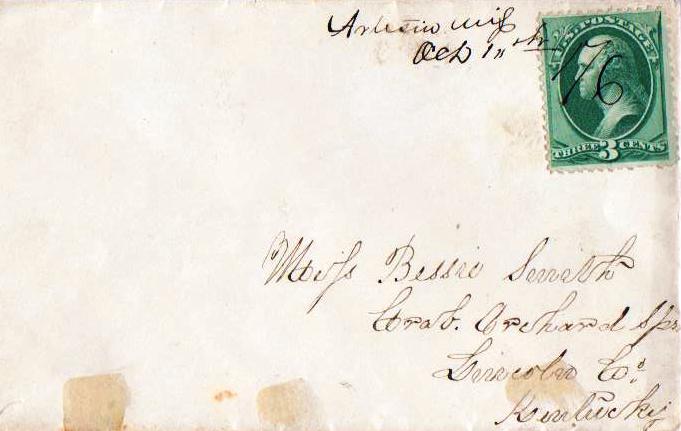 Artesia Miss
Oct 1st
76
U.S. POSTAGE
THREE 3 CENTS
Miss Bessie Smith
Crab. Orchard Spr
Lincoln Co.
Kentucky